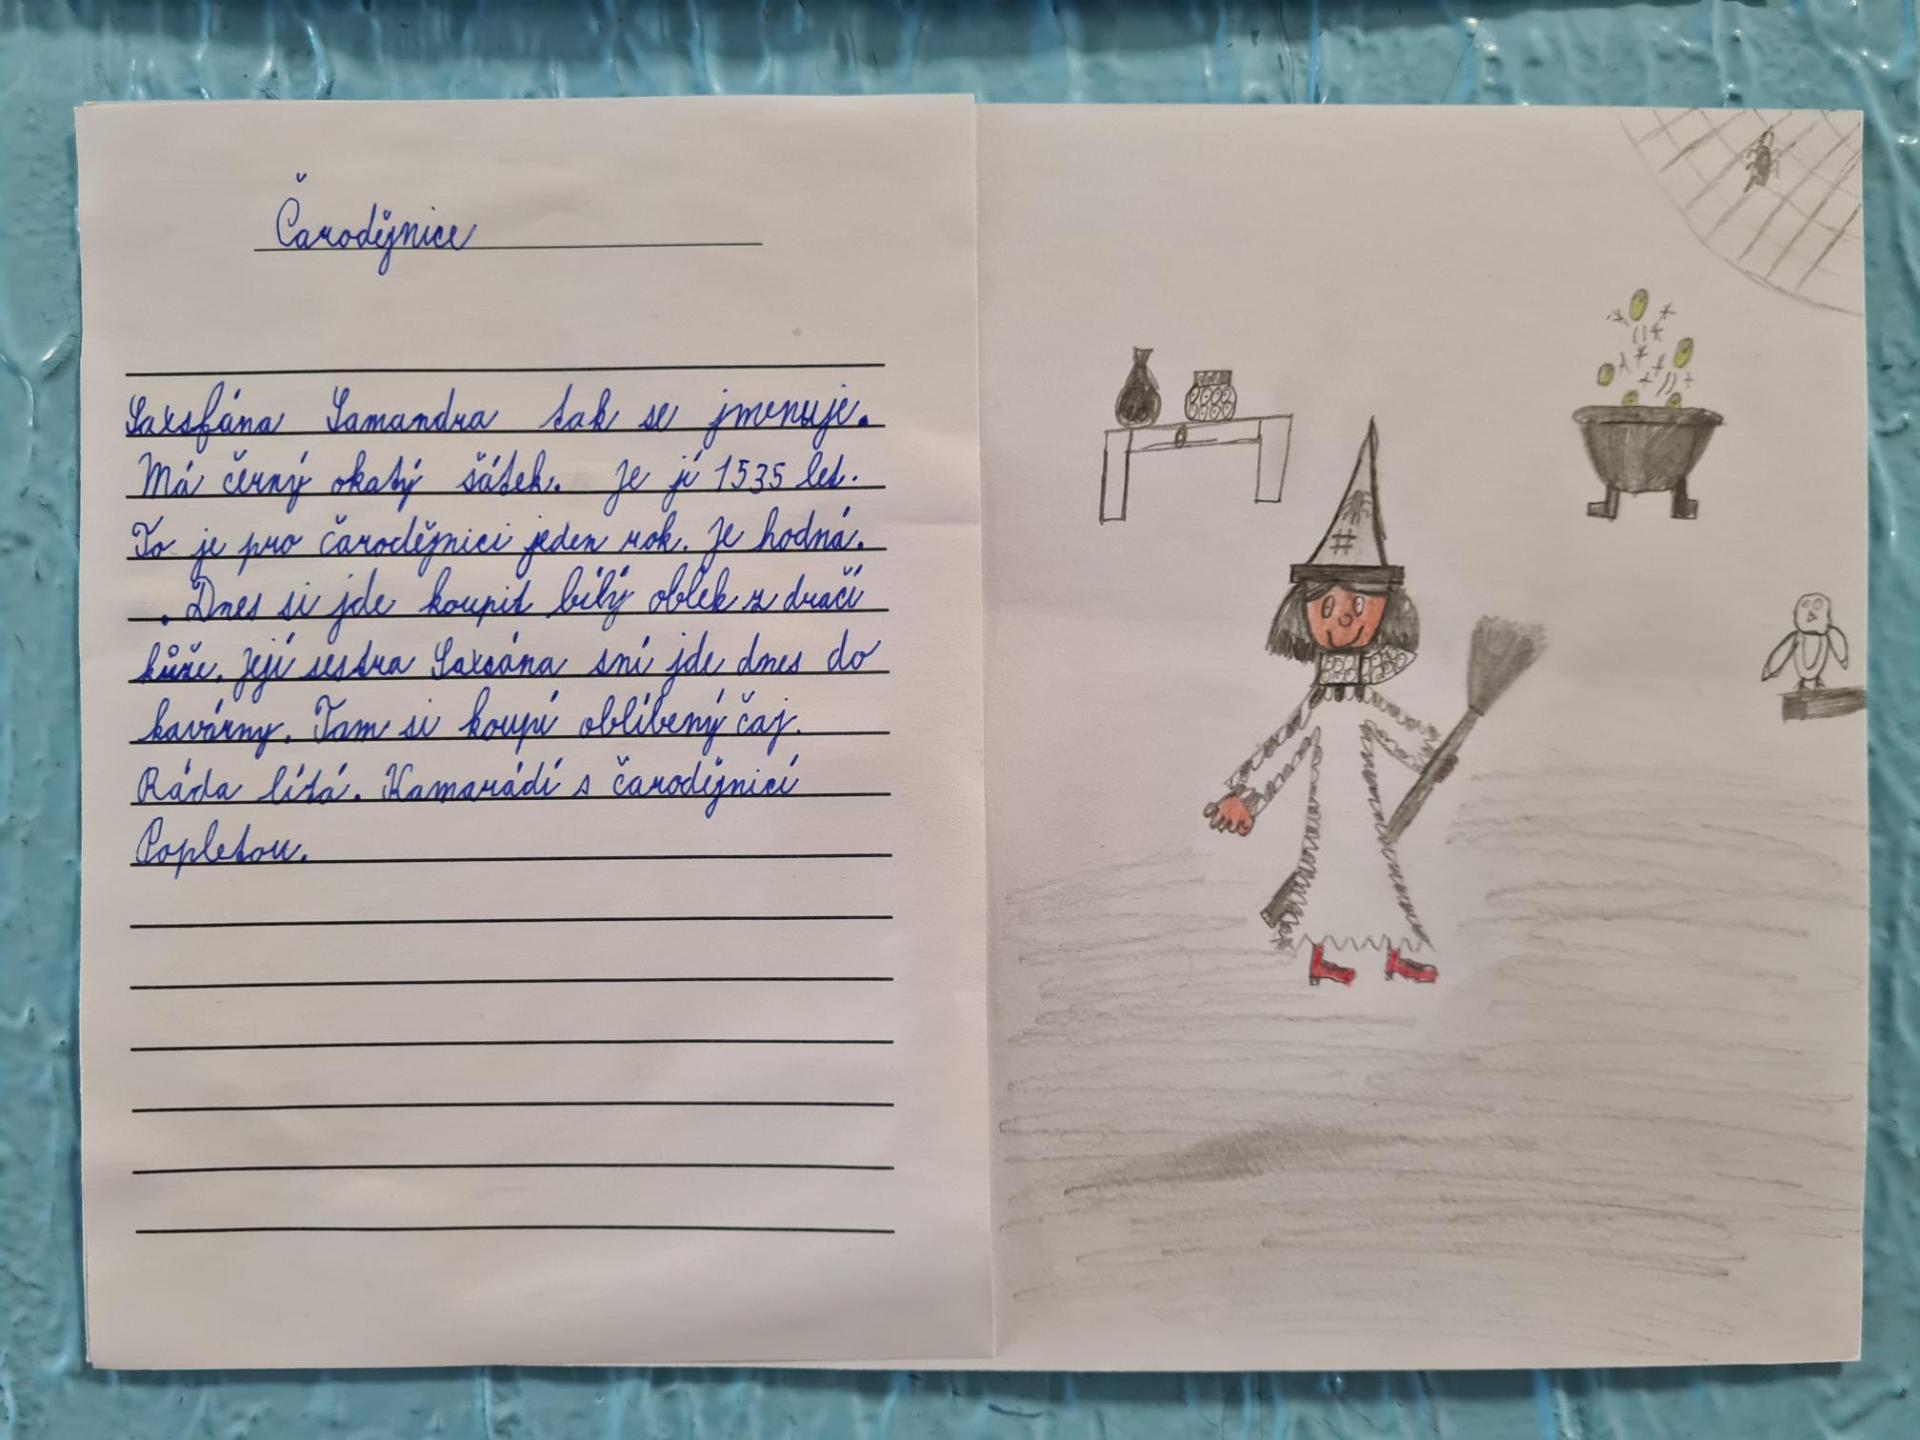 Čarodějnice
Saxsfána Samandra tak se jmenuje.
Má černý okatý šátek. Je jí 1535 let.
To je pro čarodějnici jeden rok. Je hodná.
. Dnes si jde koupit bílý oblek z dračí
kůže. Její sestra Saxána sní jde dnes do
kavárny. Tam si koupí oblíbený čaj.
Ráda lítá. Kamarádí s čarodějnicí
Popletou.